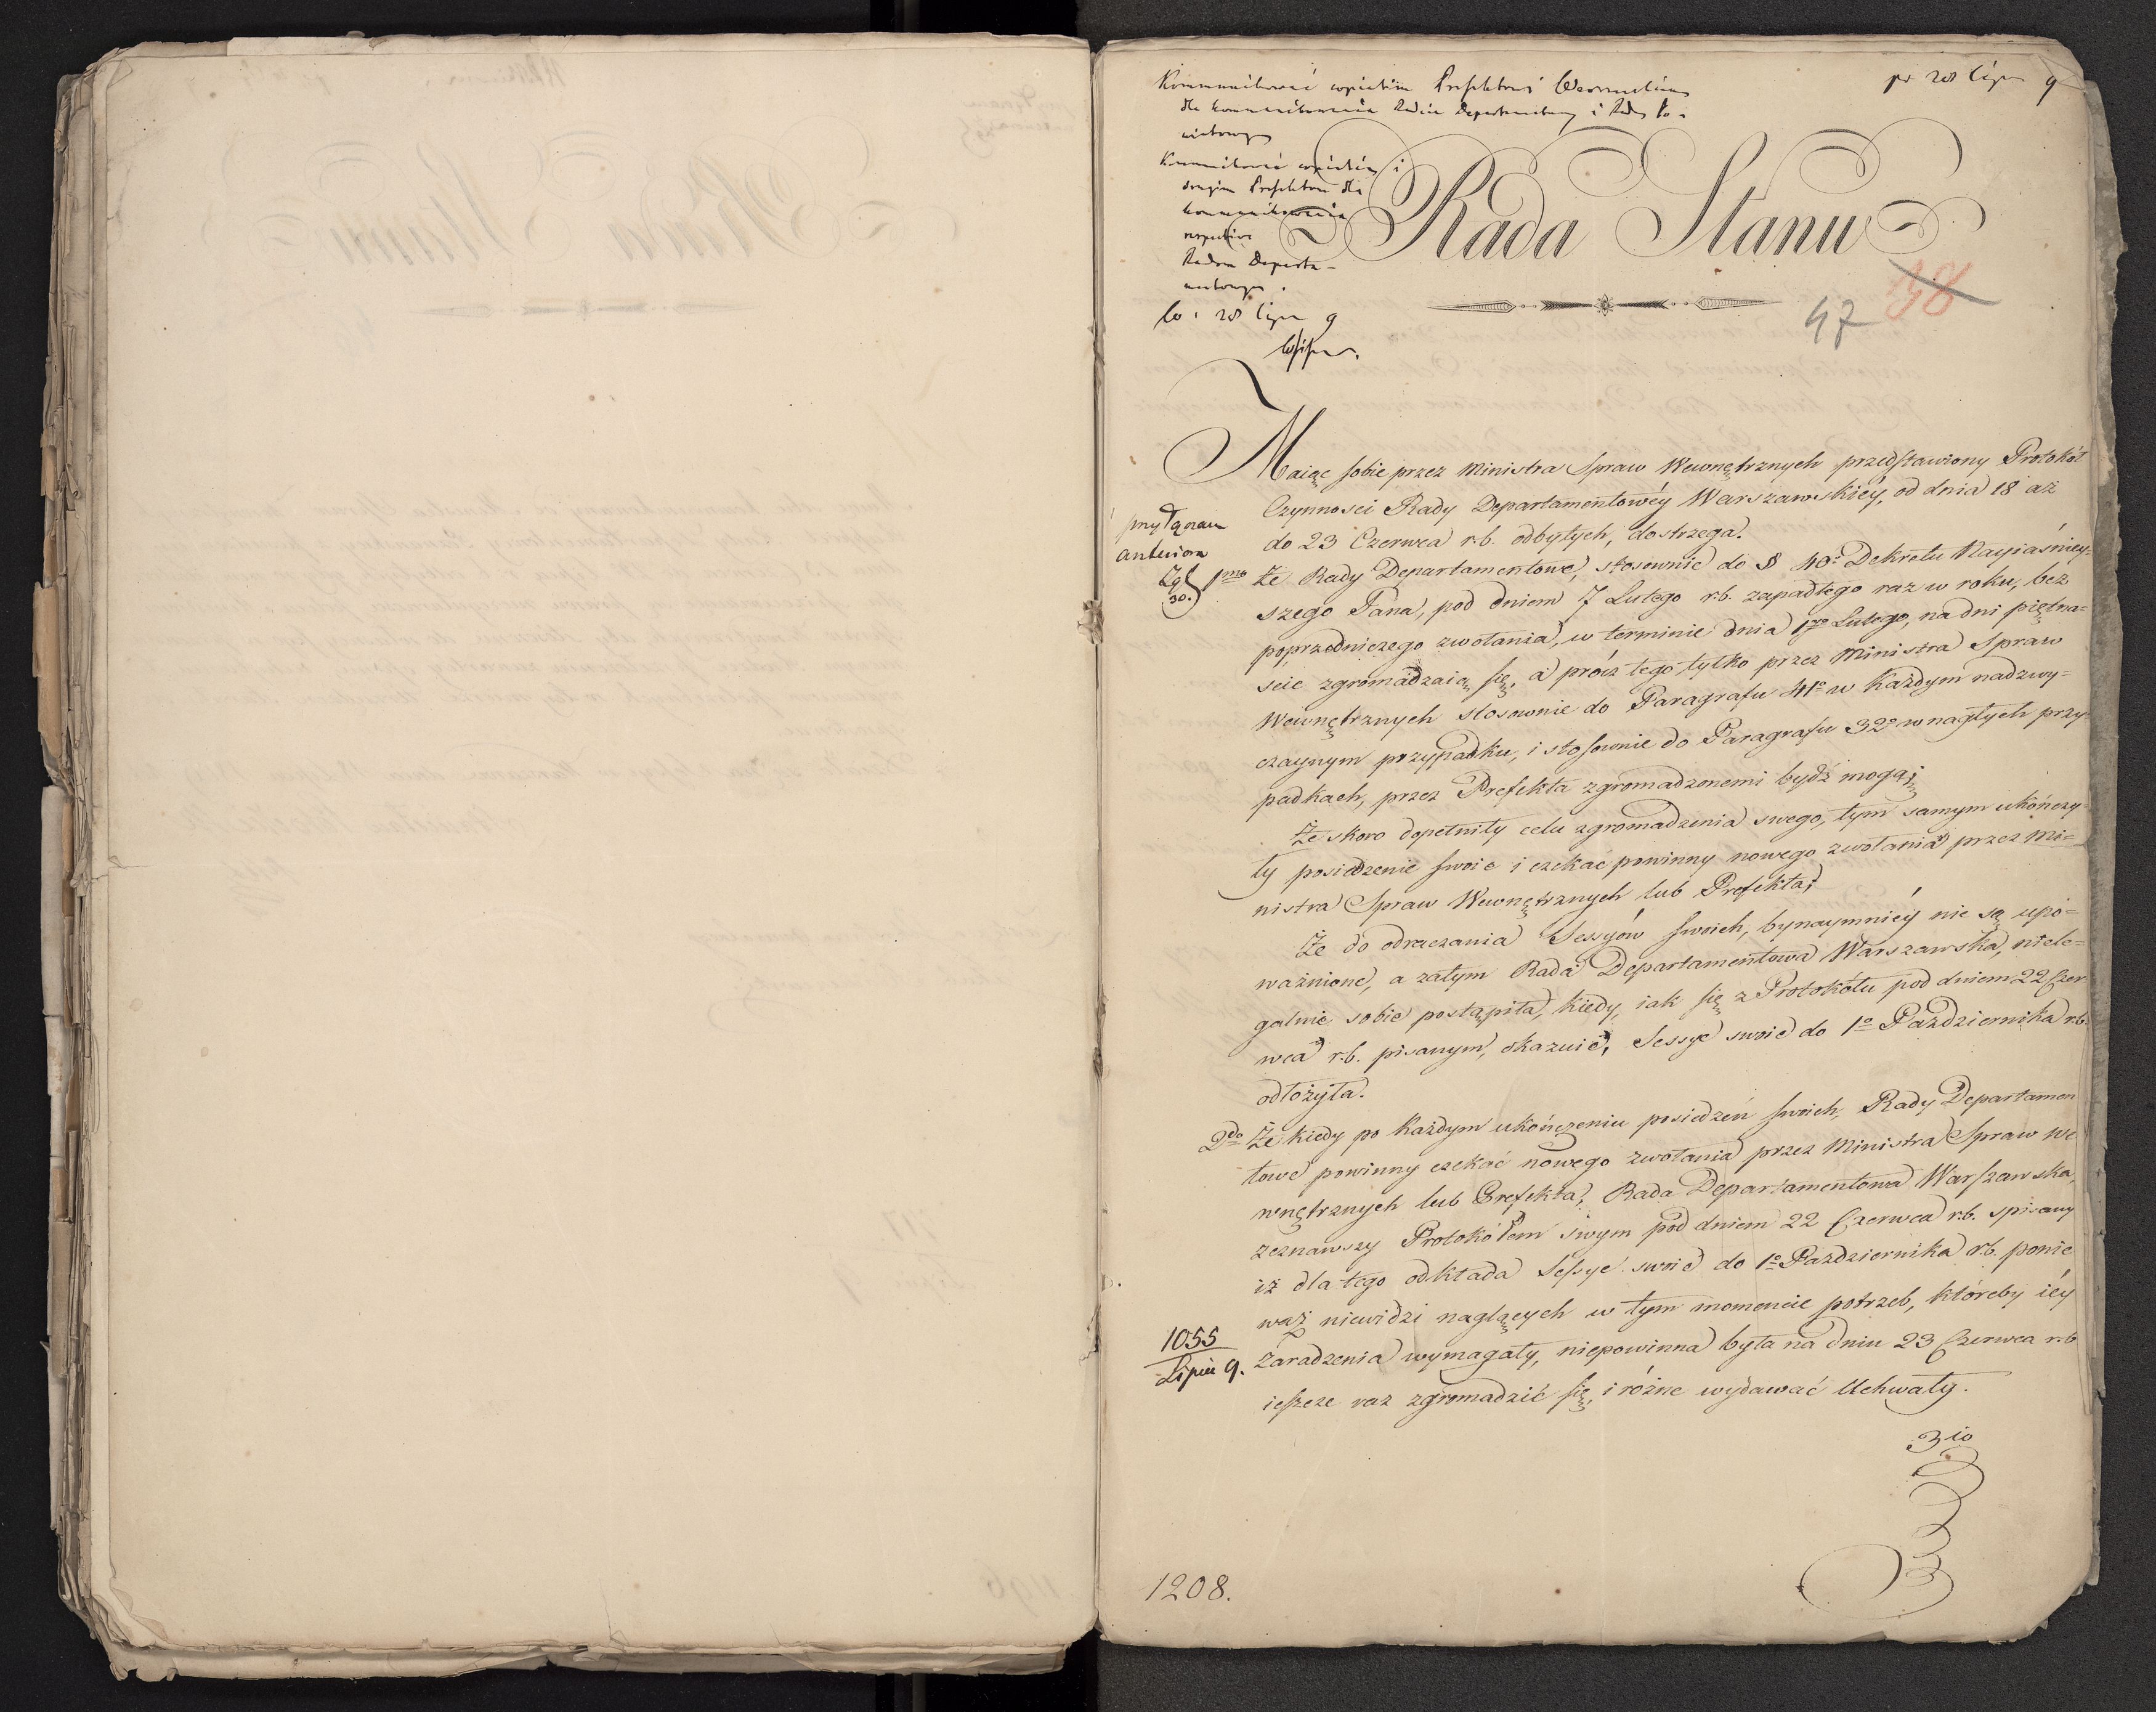 pr 28 Lipca 9
Kommunikować wypisem Prefektowi Warszawskiemu
dla kommunikowania Radzie Departamentowy i Rady Po-
wiatowym
Kommunikować wypisem i
drugim Prefektom dla
kommunikowania
respective
Radom Departa-
mentowym.
28 Lipca 9
Rada Stanu
47 38
Maiąc sobie przez Ministra Spraw Wewnętrznych przedstawiony Protokół
Czynnosci Rady Departamentowéy Warszawskiéy, od dnia 18 aż
do 23 Czerwca r.b. odbytych, dostrzega.
anteriora
30.
1mo że Rady Departamentowe, stosownie do § 40o Dekretu Nayiaśniey-
szego Pana, pod dniem 7 Lutego r.b. zapadłego raz w roku, bez
poprzedniczego zwołania, w terminie dnia 1go Lutego, na dni piętna=
scie zgromadzaią się, a prócz tego tylko przez Ministra Spraw
Wewnętrznych stosownie do Paragrafu 41o w każdym nadzwy=
czaynym przypadku, i stosownie do Paragrafu 32o w nagłych przy
padkach, przez Prefekta zgromadzonemi bydź mogą;
Że skoro dopełniły celu zgromadzenia swego, tym samym ukończy=
ły posiedzenie swoie i czekać powinny nowego zwołania przez Mi=
nistra Spraw Wewnętrznych lub Prefekta;
Że do odraczania Sessyów swoich, bynaymniéy nie są upo=
ważnione, a zatym Rada Departamentowa Warszawska, niele=
galnie sobie postąpiła, kiedy, iak się z Protokółu pod dniem 22 Czer
wca r.b. pisanym, okazuie, Sessye swoie do 1o Października r.b.
odłożyła.
2do Że kiedy po każdym ukończeniu posiedzeń swoich, Rady Departamen
towe powinny czekać nowego zwołania przez Ministra Spraw We
wnętrznych lub Prefekta, Rada Departamentowa Warszawska,
zeznawszy Protokółem swym pod dniem 22 Czerwca r.b. spisany
iż dla tego odkłada Sessye swoie do 1o Października r.b. ponie
waż niewidzi naglących w tym momencie potrzeb, któreby iéy
zaradzenia wymagały, niepowinna była na dniu 23 Czerwca r.b
ieszcze raz zgromadzić się, i różne wydawać Uchwały.
1055
Lipiec 9.
3io
1208.